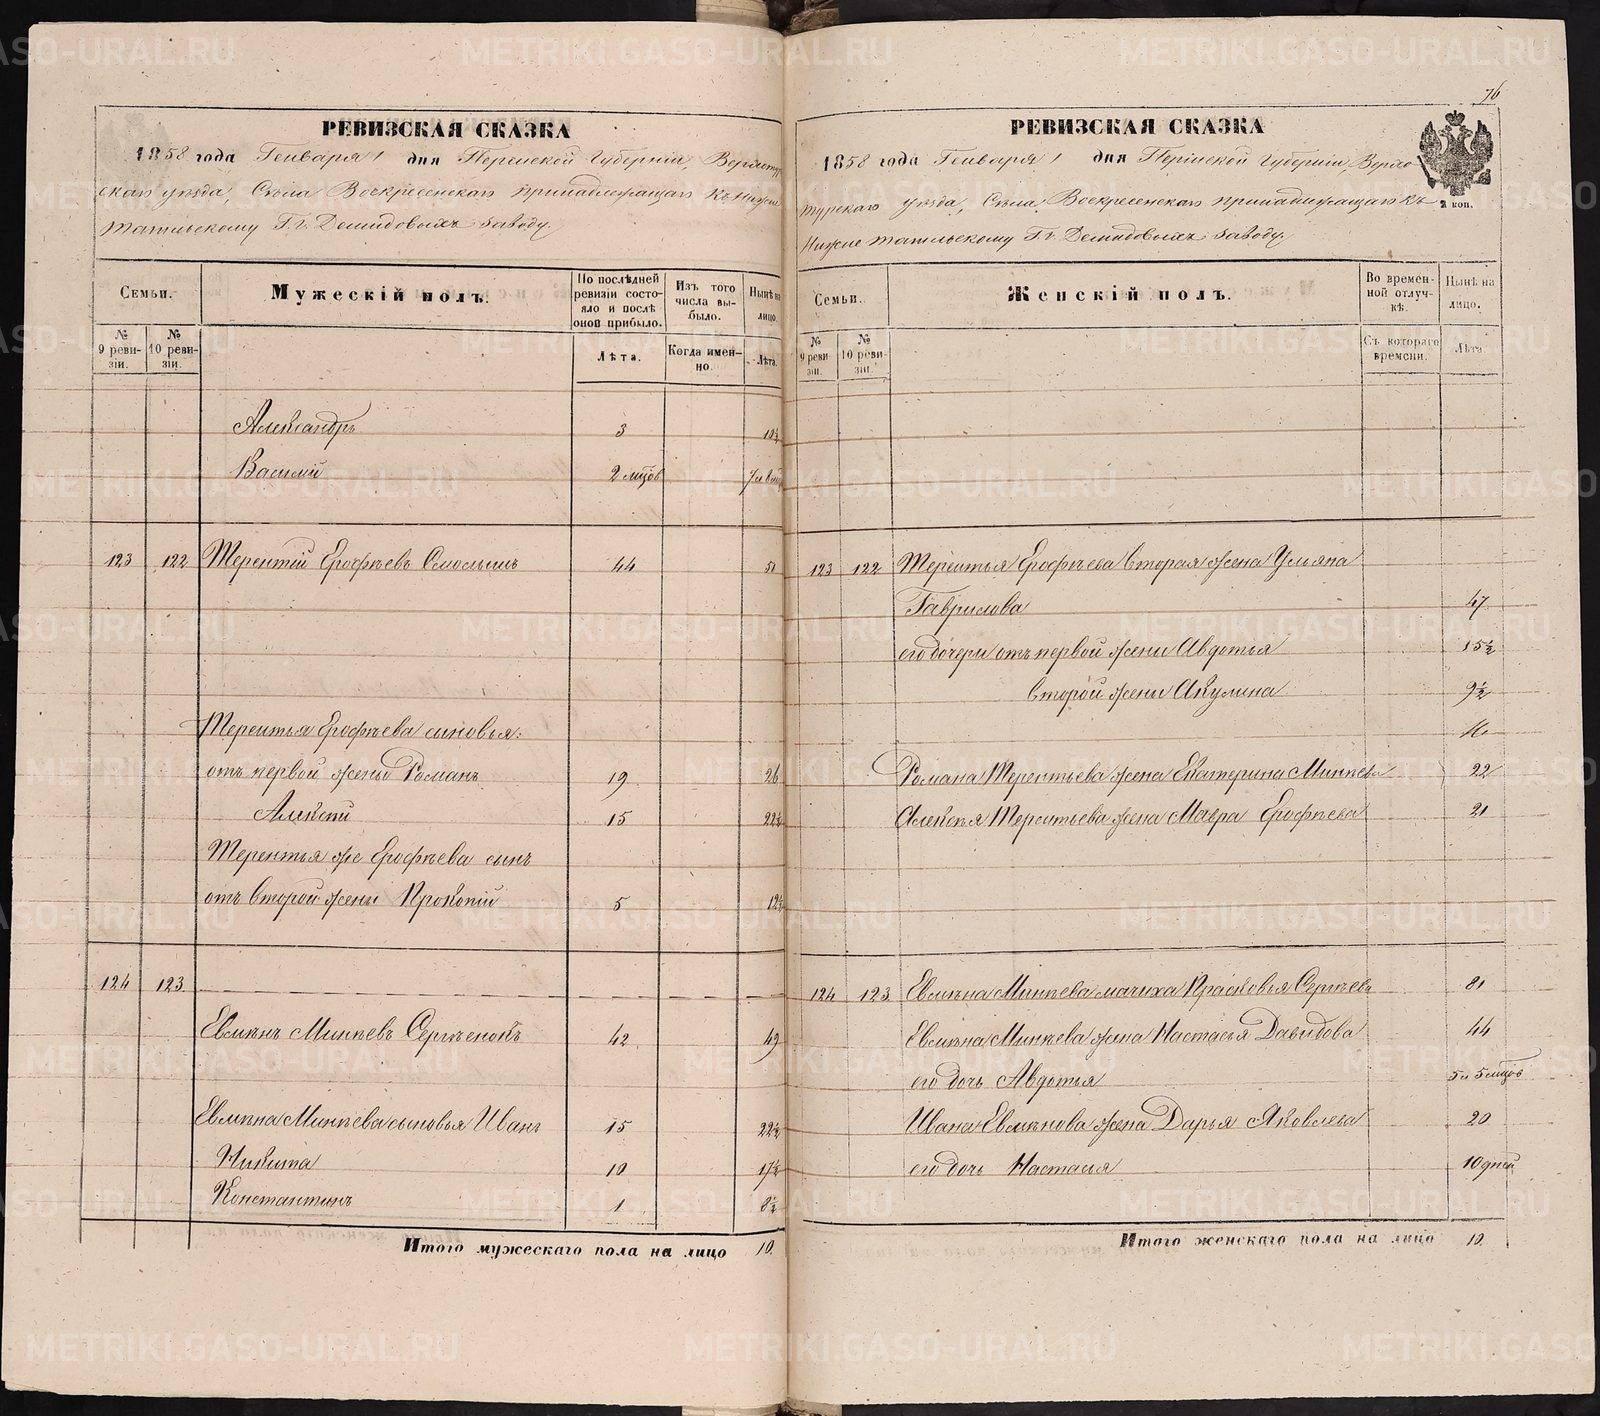 76
РЕВИЗСКАЯ СКАЗКА
1858 года Генваря 1 дня Пермской Губернии, Верхотур
скаго уѣзда, Села Воскресенскаго принадлежащаго къ Нижне
тагильскому Г.г. Демидовыхъ заводу.
Семьи.
Мужескій полъ.
По послѣдней ревизіи состояло и послѣ оной прибыло.
Изъ того числа выбыло.
Нынѣ на лицо.
№ 9 ревизіи.
№ 10 ревизіи.
Лѣта.
Когда именно.
Лѣта.
Александръ 3 10½
Василій 2 мцов 7 и 8 мц
123 122 Терентій Ерофѣевъ Смольинъ 44 51
Терентья Ерофѣева сыновья:
отъ первой жены Романъ 19 26
Алексѣй 15 22½
Терентья же Ерофѣева сынъ
отъ второй жены Прокопій 5 12½
124 123
Евмѣнъ Минѣевъ Сергѣенокъ 42 49
Евмѣна Минѣева сыновья Иванъ 15 22½
Никита 10 17½
Константинъ 1 8½
Итого мужескаго пола на лицо 10.
РЕВИЗСКАЯ СКАЗКА
1858 года Генваря 1 дня Пермской Губернии, Верхо
турскаго уѣзда, Села Воскресенскаго принадлежащаго къ
Нижне тагильскому Г.г. Демидовыхъ заводу.
2 коп.
Семьи.
Женскій полъ.
Во временной отлучкѣ.
Нынѣ на лицо.
№ 9 ревизіи.
№ 10 ревизіи.
Съ котораго времени.
Лѣта.
123 122 Терентья Ерофѣева вторая жена Ульяна
Гаврилова 47
его дочери отъ первой жены Авдотья 15½
второй жены Акулина 9½
Романа Терентьева жена Екатерина Минѣева 22
Алексѣя Терентьева жена Мавра Ерофѣева 21
124 123 Евмѣна Минѣева мачиха Прасковья Сергѣева 81
Евмѣна Минѣева жена Настасья Давидова 44
его дочь Авдотья 5 и 5 мцов
Ивана Евмѣнова жена Дарья Яковлева 20
его дочь Настасья 10 дней
Итого женскаго пола на лицо 10.
METRIKI.GASO-URAL.RU